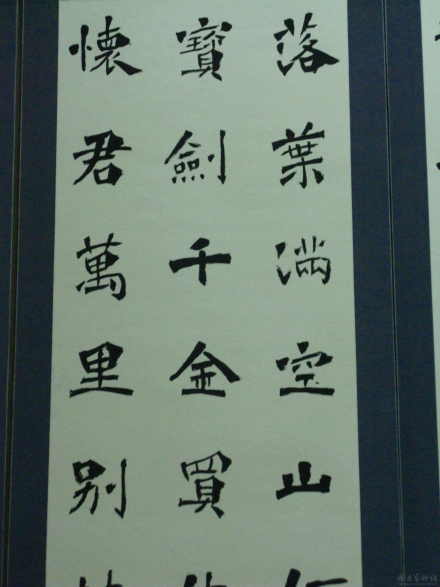 落葉滿空山
寶劍千金買
懷君萬里別